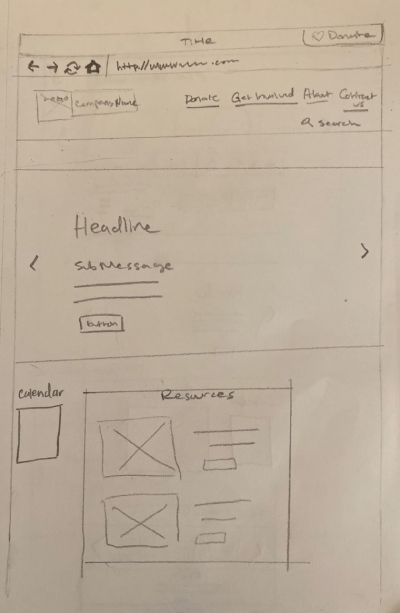 Title
♡ Donate
http://www.com
Logo Company Name
Donate Get Involved About Contact us
search
Headline
SubMessage
button
Calendar
Resources